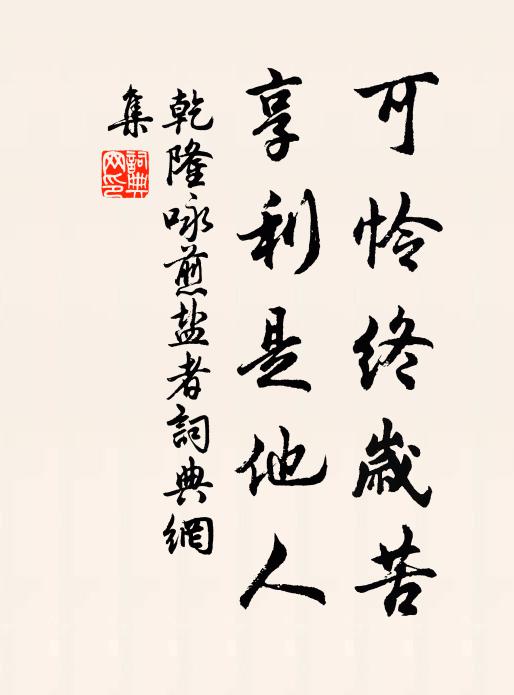 可怜终岁苦
享利是他人
乾隆咏煎盐者詞典網
集
詞典
网印